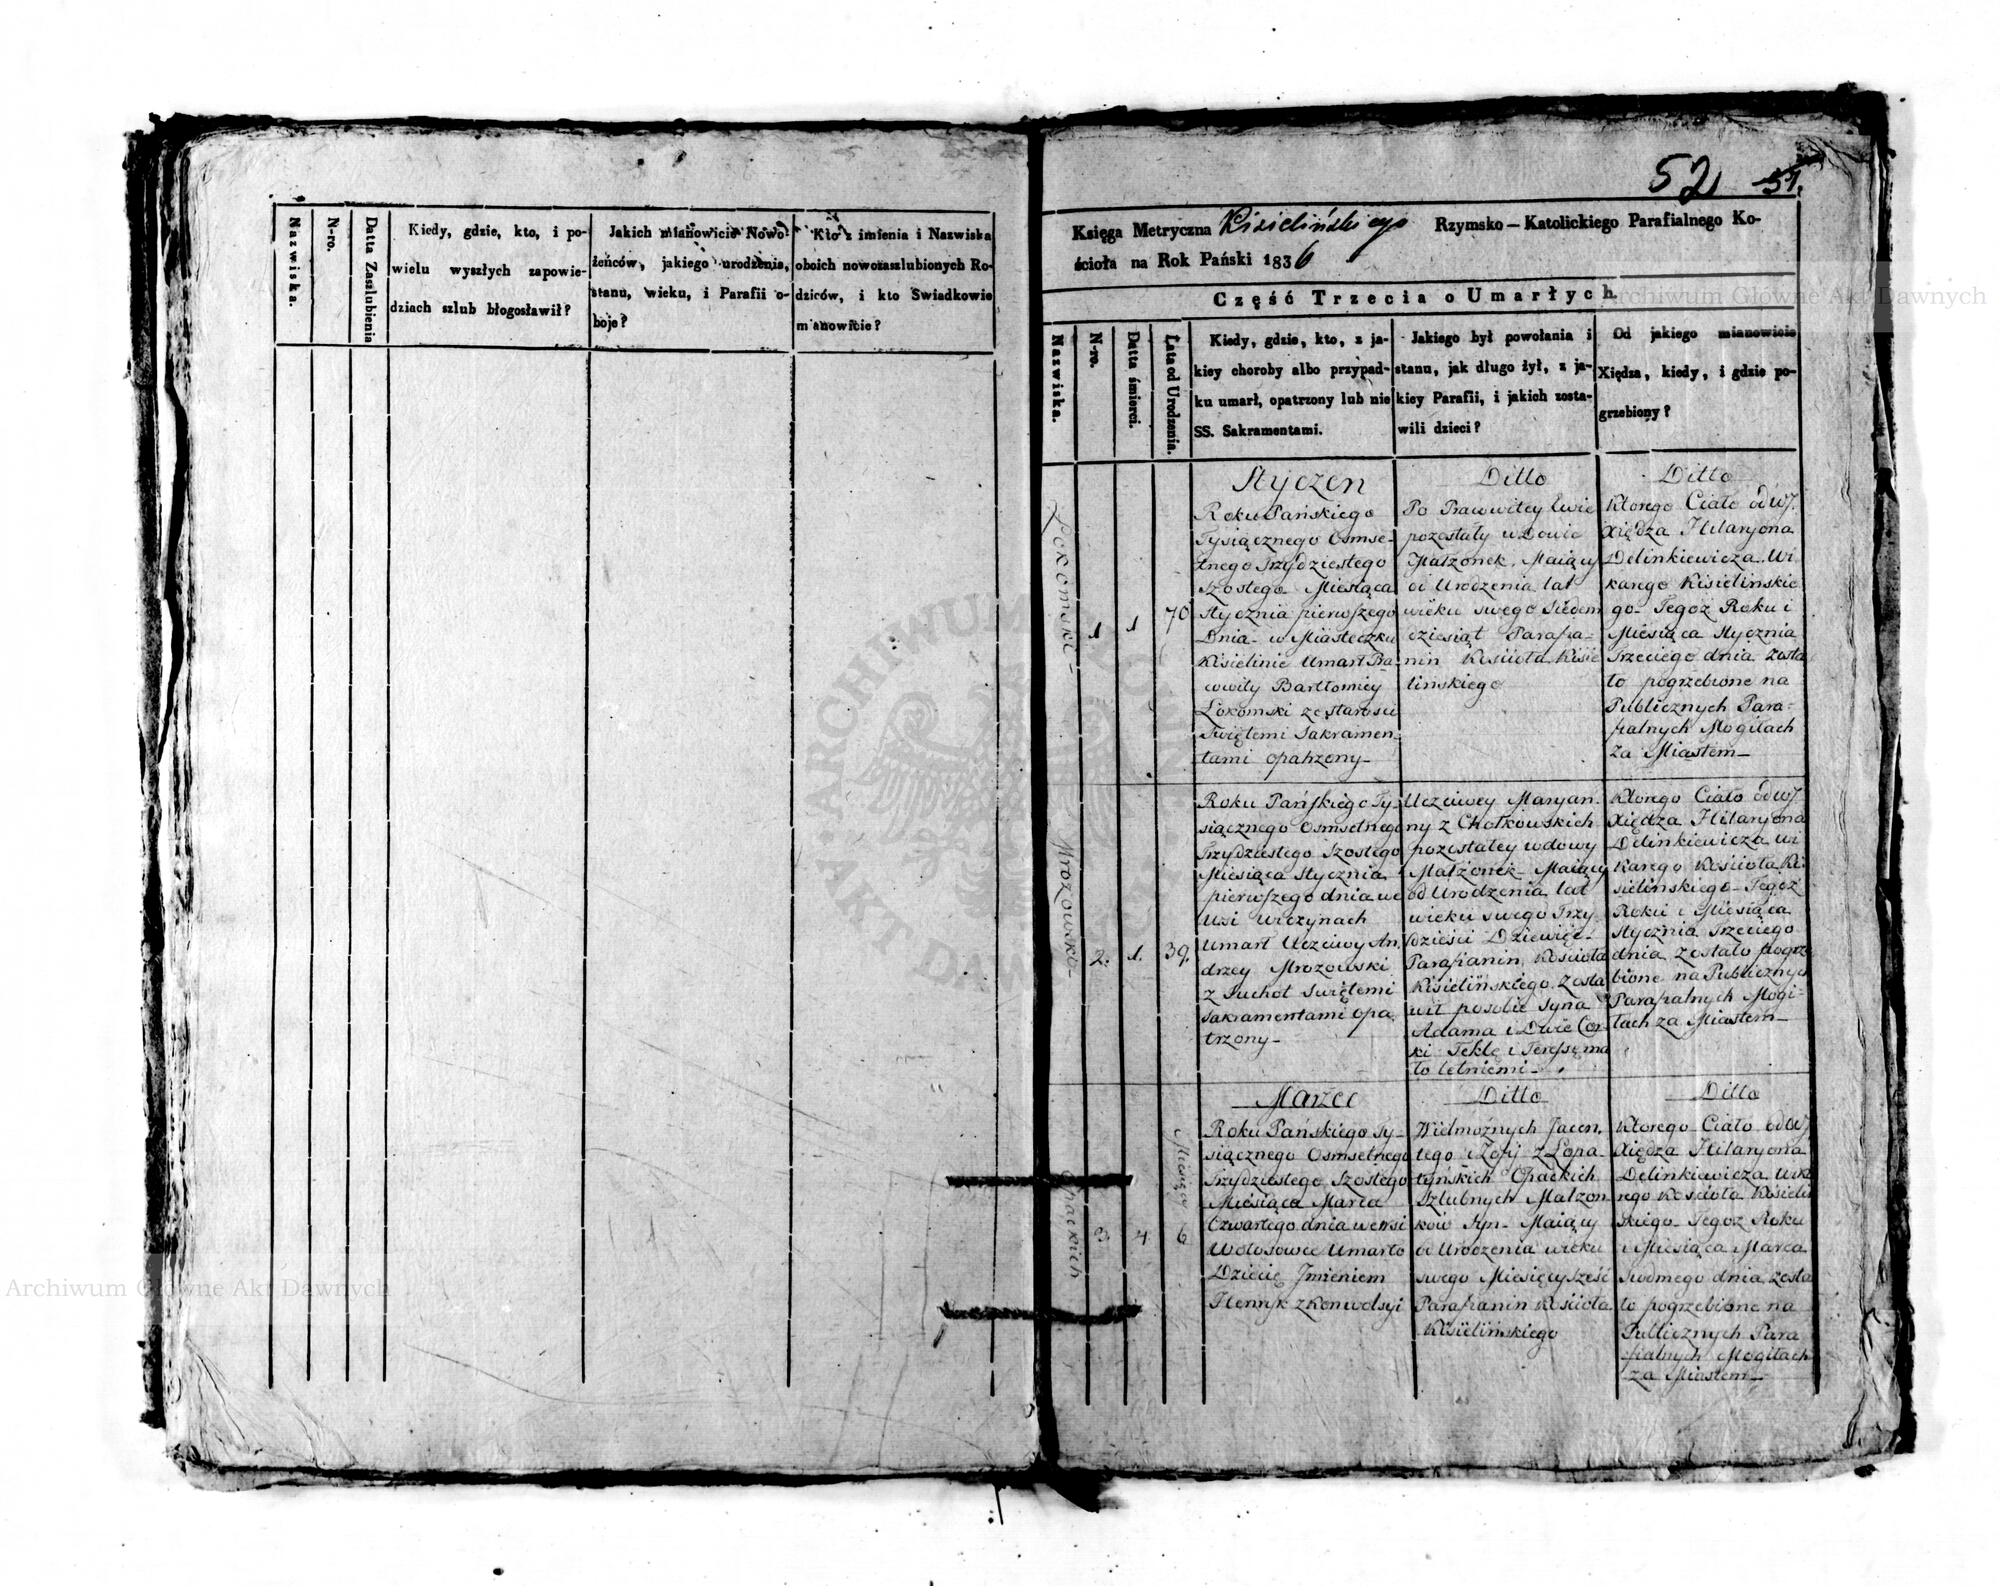 Nazwiska.
N-ro.
Datta Zaszlubienia
Kiedy, gdzie, kto, i po-
wielu wyszłych zapowie-
dziach szlub błogosławił?
Jakich mianowicie Nowo-
żeńców, jakiego urodzenia,
stanu, wieku, i Parafii o-
boje?
Kto z imienia i Nazwiska
oboich nowozaszlubionych Ro-
dziców, i kto Swiadkowie
mianowicie?
52 51.
Księga Metryczna Kisielińskiego Rzymsko-Katolickiego Parafialnego Ko-
ścioła na Rok Pański 1836
Część Trzecia o Umarłych.
Nazwiska.
N-ro.
Datta śmierci.
Lata od Urodzenia.
Kiedy, gdzie, kto, z ja-
kiey choroby albo przypad-
ku umarł, opatrzony lub nie
SS. Sakramentami.
Jakiego był powołania i
stanu, jak długo żył, z ja-
kiey Parafii, i jakich zosta-
wili dzieci?
Od jakiego mianowicie
Xiędza, kiedy, i gdzie po-
grzebiony?
1
1
70
Styczen
Roku Pańskiego
Tysiącznego Osmse-
tnego Trzydziestego
Szostego Miesiąca
Stycznia pierwszego
Dnia - w Miasteczku
Kisielinie Umarł Pra-
cowity Bartłomiey
Łokomski ze starosci
Swiętemi Sakramen-
tami opatrzony-
Ditto
Po Pracowitey Ewie
pozostały w Dowie
Małzonek, Maiący
od Urodzenia lat
wieku swego Siedem
dziesiąt Parafia-
nin Kościoła Kisie
lińskiego
Ditto
Ktorego Ciało od WJ.
Xiędza Hilaryona
Delinkiewicza Wi
karego Kisielińskie
go- Tegoż Roku i
Miesiąca Stycznia
Trzeciego dnia zosta
ło pogrzebione na
Publicznych Para-
fialnych Mogiłach
za Miastem-
Mrozowski-
2.
1.
39.
Roku Pańskiego Ty-
siącznego Osmsetnego
Trzydziestego Szostego
Miesiąca Stycznia
pierwszego dnia we
Wsi Wiczynach
Umarł Uczciwy An,
drzey Mrozowski
z Suchot Swiętemi
Sakramentami opa,
trzony-
Uczciwey Maryan-
ny z Chotkowskich
pozostałey wdowy
Małżonek- Maiący
od Urodzenia lat
wieku swego Trzy
dzieści Dziewięć-
Parafianin Kościoła
Kisielińskiego Zosta
wił posobie Syna
Adama i Dwie Cor
ki Teklę i Teressę ma
ło letniemi-
Ktorego Ciało od WJ
Xiędza Hilaryona
Delinkiewicza Wi
karego Kościoła Ki
sielińskiego- Tegoż
Roku i Miesiąca
Stycznia Trzeciego
dnia zostało pogrze
bione na Publicznych
Parafialnych Mogi-
łach za Miastem-
Opackich
3
4
Miesięcy
6
Marzec
Roku Pańskiego Ty-
siącznego Osmsetnego
Trzydziestego Szostego
Miesiąca Marca
Czwartego dnia we Wsi
Wołosowce Umarło
Dziecię Jmieniem
Henryk z Konwulsyi
Ditto
Wielmożnych Jacen,
tego i Zofij z Łopa-
tyńskich Opackich
Szlubnych Małzon
ków Syn- Maiący
od Urodzenia wieku
swego Miesięcy sześć
Parafianin Kościoła
Kisielińskiego
Ditto
Ktorego Ciało od WJ
Xiędza Hilaryona
Delinkiewicza Wika
rego Kościoła Kisieliń
skiego- Tegoż Roku
i Miesiąca Marca
Siodmego dnia zosta
ło pogrzebione na
Publicznych Para
fialnych Mogiłach
za Miastem-
Archiwum Główne Akt Dawnych
Archiwum Główne Akt Dawnych
ARCHIWUM GŁÓWNE AKT DAWNYCH